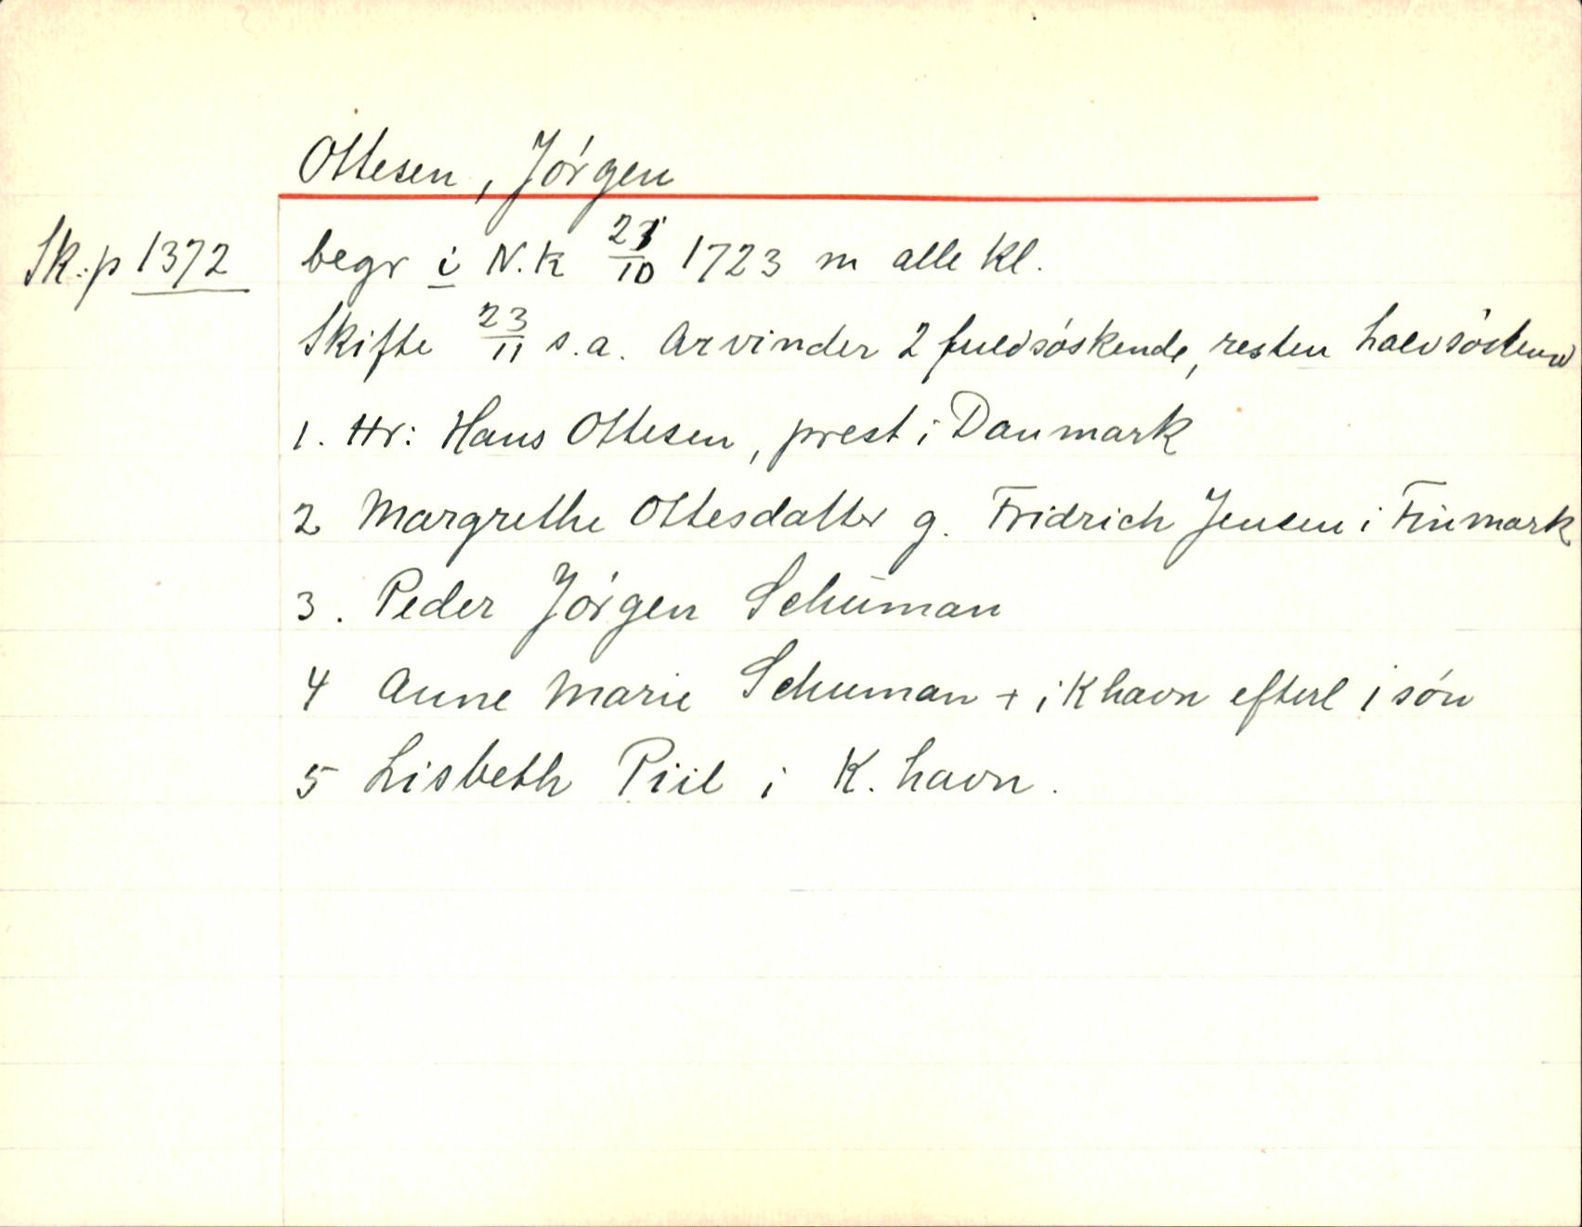 Ottesen, Jörgen
Sk. p 1372 begr i N.K 21/10 1723 m alle kl.
Skifte 23/11 s.a. Arvinder 2 fuldsöskende, resten halvsöskend
1. Hr: Hans Ottesen, prest i Danmark
2 Margrethe Ottesdatter g. Fridrich Jensen i Finmark
3. Peder Jörgen Schuman
4 Anne Marie Schuman + i Khavn efterl 1 sön
5 Lisbeth Piil i K.havn.